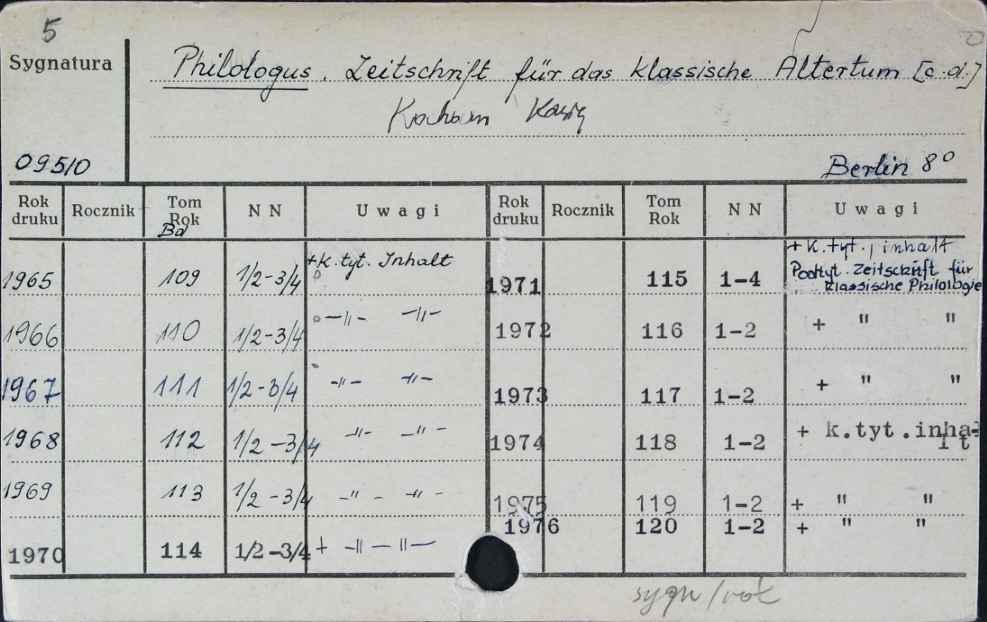 5
Sygnatura
Philologus. Zeitschrift für das Klassische Altertum [c.d.]
09510
Berlin 8°
Rok druku Rocznik Tom Rok Bd N N Uwagi Rok druku Rocznik Tom Rok N N Uwagi
1965 109 1/2-3/4 +k.tyt. Inhalt 1971 115 1-4 +k.tyt., inhalt Podtyt. Zeitschrift für klassische Philologie
1966 110 1/2-3/4 -"- -"- 1972 116 1-2 + " "
1967 111 1/2-3/4 -"- -"- 1973 117 1-2 + " "
1968 112 1/2-3/4 -"- -"- 1974 118 1-2 + k.tyt.inhalt
1969 113 1/2-3/4 -"- -"- 1975 119 1-2 + " "
1976 120 1-2 + " "
1970 114 1/2-3/4 + -"- -"-
sygn/rok